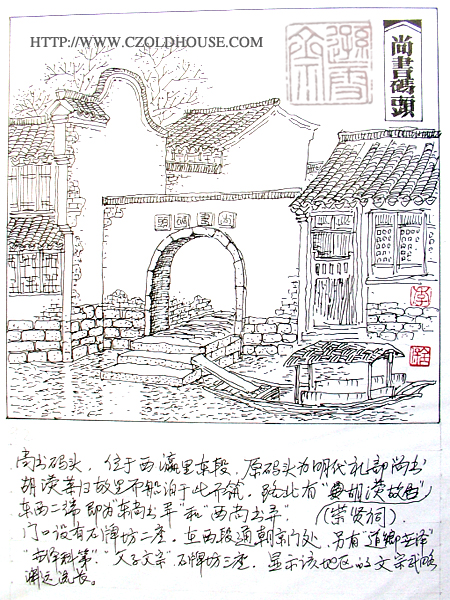 HTTP://WWW.CZOLDHOUSE.COM
尚書碼頭
尚書碼頭
李
尚书码头，位于西瀛里东段，原码头为明代礼部尚书
胡濙等归故里船泊于此而筑，路北有"胡濙故居"
东西二弄即为"东尚书弄"和"西尚书弄"（崇贤祠）．
门口设有石牌坊二座，在西段通朝京门处，另有"道乡
科第"，"天子文宗"石牌坊三座，显示该地区的文宗武略
渊远流长。